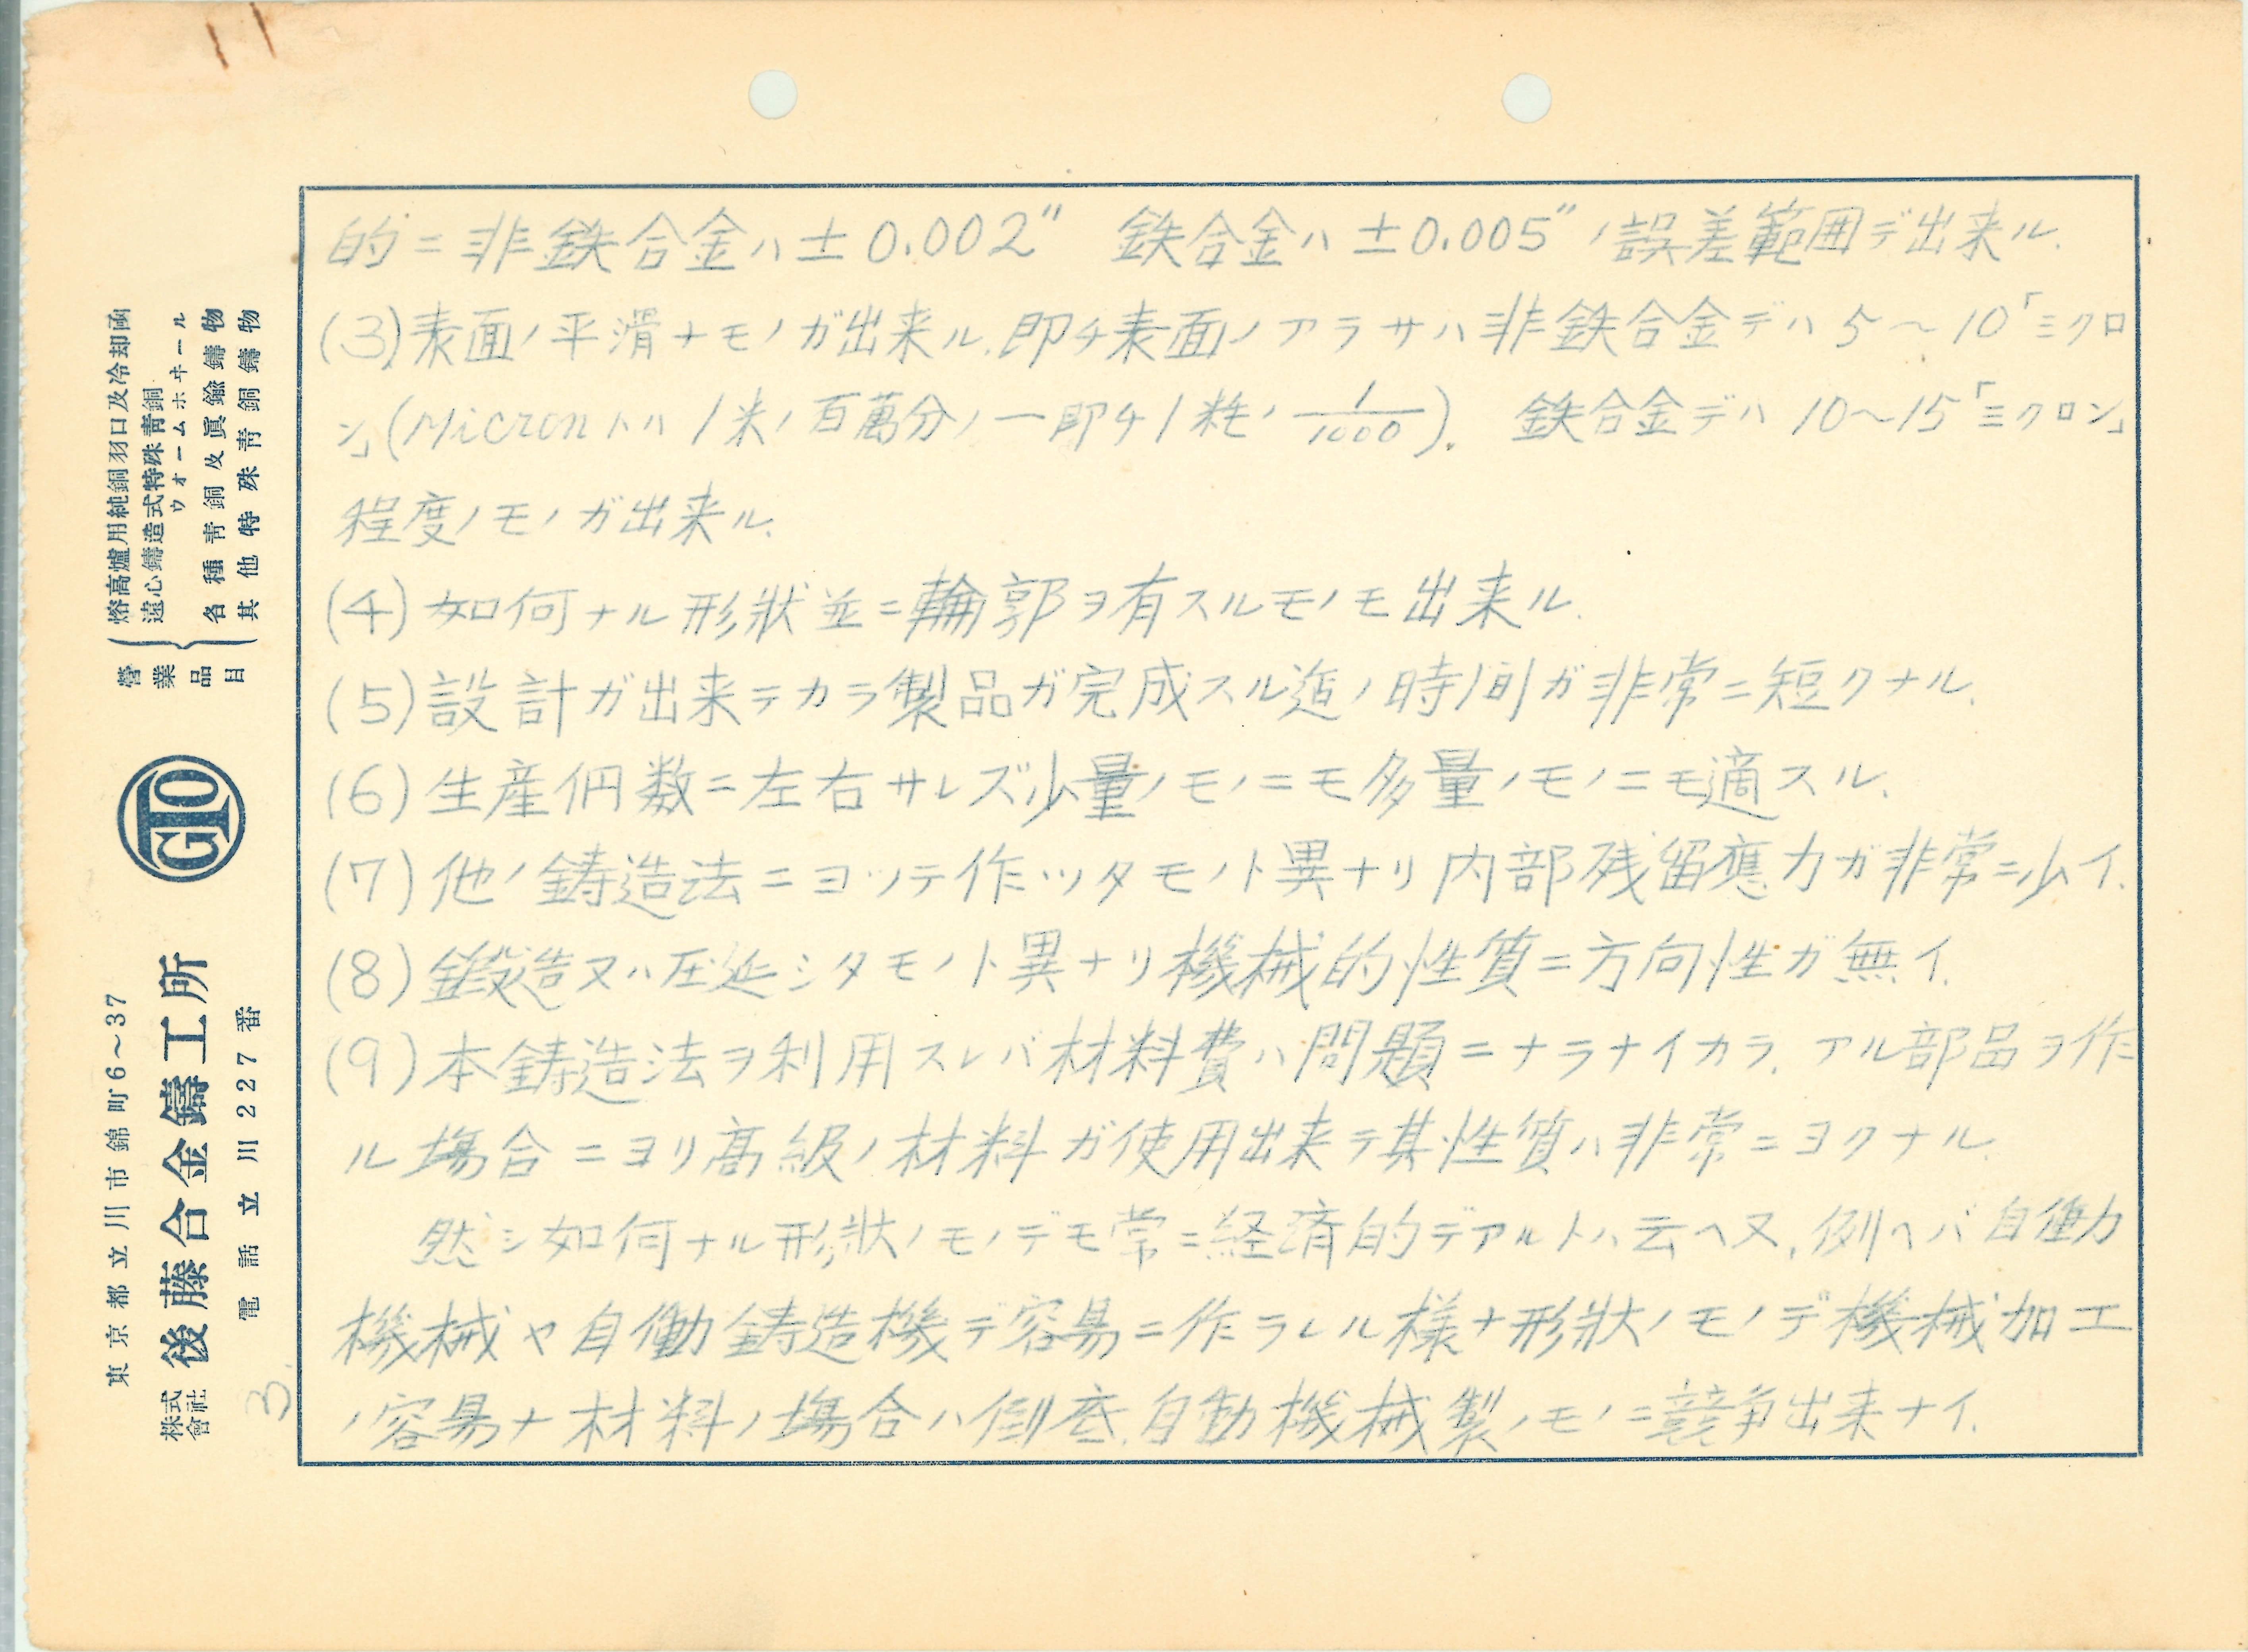 的ニ非鉄合金ハ±0.002″ 鉄合金ハ±0.005″ノ誤差範囲デ出来ル.
(3)表面ノ平滑ナモノガ出来ル.即チ表面ノアラサハ非鉄合金デハ5〜10「ミクロ
ン」(Micronトハ1米ノ百萬分ノ一即チ1粍ノ1/1000). 鉄合金デハ10〜15「ミクロン」
程度ノモノガ出来ル.
(4)如何ナル形狀並ニ輪郭ヲ有スルモノモ出来ル.
(5)設計ガ出来テカラ製品ガ完成スル迄ノ時間ガ非常ニ短クナル.
(6)生産個数ニ左右サレズ少量ノモノニモ多量ノモノニモ適スル.
(7)他ノ鋳造法ニヨッテ作ッタモノト異ナリ内部残留應力ガ非常ニ少イ.
(8)鍛造又ハ圧延シタモノト異ナリ機械的性質ニ方向性ガ無イ.
(9)本鋳造法ヲ利用スレバ材料費ハ問題ニナラナイカラ.アル部品ヲ作
ル場合ニヨリ高級ノ材料ガ使用出来テ其性質ハ非常ニヨクナル.
然シ如何ナル形狀ノモノデモ常ニ経済的デアルトハ云ヘヌ.例ヘバ自働
機械ヤ自働鋳造機デ容易ニ作ラレル様ナ形狀ノモノデ機械加工
ノ容易ナ材料ノ場合ハ倒底自動機械製ノモノニ競争出来ナイ.
3.
營業品目
熔高爐用純銅羽口及冷却函
遠心鑄造式特殊青銅ウオームホヰール
各種青銅及眞鍮鑄物
其他特殊青銅鑄物
GTO
東京都立川市錦町6〜37
株式會社 後藤合金鑄工所
電話立川227番